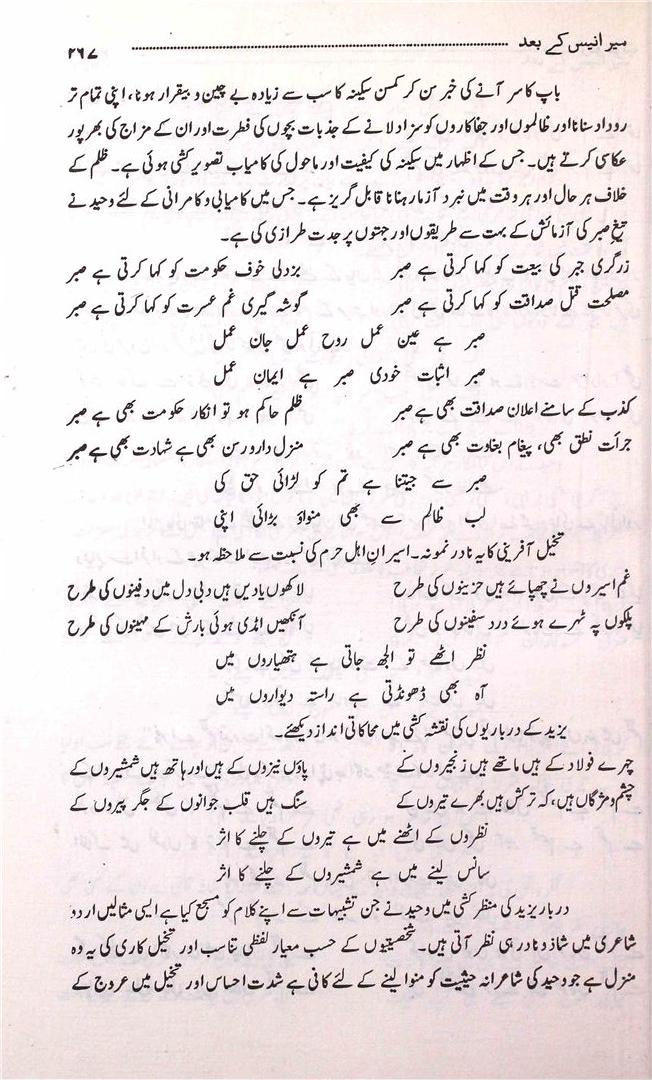 میر انیس کے بعد ۲۶۷
باپ کا سر آنے کی خبر سن کر کمسن سکینہ کا سب سے زیادہ بے چین و بیقرار ہونا، اپنی تمام تر
روداد سنانا اور ظالموں اور جفا کاروں کو سزا دلانے کے جذبات بچوں کی فطرت اور ان کے مزاج کی بھرپور
عکاسی کرتے ہیں۔ جس کے اظہار میں سکینہ کی کیفیت اور ماحول کی کامیاب تصویر کشی ہوئی ہے۔ ظلم کے
خلاف ہر حال اور ہر وقت میں نبرد آزما رہنا ناقابل گریز ہے۔ جس میں کامیابی و کامرانی کے لئے وحید نے
تیغِ صبر کی آزمائش کے بہت سے طریقوں اور جہتوں پر جدت طرازی کی ہے۔
زرگری جبر کی بیعت کو کہا کرتی ہے صبر بزدلی خوف حکومت کو کہا کرتی ہے صبر
مصلحت قتل صداقت کو کہا کرتی ہے صبر گوشہ گیری غم عسرت کو کہا کرتی ہے صبر
صبر ہے عین عمل روح عمل جان عمل
صبر اثبات خودی صبر ہے ایمانِ عمل
کذب کے سامنے اعلان صداقت بھی ہے صبر ظلم حاکم ہو تو انکار حکومت بھی ہے صبر
جرأت نطق بھی، پیغام بغاوت بھی ہے صبر منزل دار و رسن بھی ہے شہادت بھی ہے صبر
صبر سے جیتنا ہے تم کو لڑائی حق کی
لب ظالم سے بھی منواؤ بڑائی اپنی
تخیل آفرینی کا یہ نادر نمونہ۔ اسیرانِ اہل حرم کی نسبت سے ملاحظہ ہو۔
غم اسیروں نے چھپائے ہیں حزینوں کی طرح لاکھوں یادیں ہیں دبی دل میں دفینوں کی طرح
پلکوں پہ ٹہرے ہوئے درد سفینوں کی طرح آنکھیں امڈی ہوئی بارش کے مہینوں کی طرح
نظر اٹھے تو الجھ جاتی ہے ہتھیاروں میں
آہ بھی ڈھونڈتی ہے راستہ دیواروں میں
یزید کے درباریوں کی نقشہ کشی میں محاکاتی انداز دیکھئے۔
چہرے فولاد کے ہیں ماتھے ہیں زنجیروں کے پاؤں نیزوں کے ہیں اور ہاتھ ہیں شمشیروں کے
چشم و مژگاں ہیں، کہ ترکش ہیں بھرے تیروں کے سنگ ہیں قلب جوانوں کے جگر پیروں کے
نظروں کے اٹھنے میں ہے تیروں کے چلنے کا اثر
سانس لینے میں ہے شمشیروں کے چلنے کا اثر
دربار یزید کی منظر کشی میں وحید نے جن تشبیہات سے اپنے کلام کو مسجع کیا ہے ایسی مثالیں اردو
شاعری میں شاذ و نادر ہی نظر آتی ہیں۔ شخصیتوں کے حسب معیار لفظی تناسب اور تخیل کاری کی یہ وہ
منزل ہے جو وحید کی شاعرانہ حیثیت کو منوا لینے کے لئے کافی ہے شدت احساس اور تخیل میں عروج کے